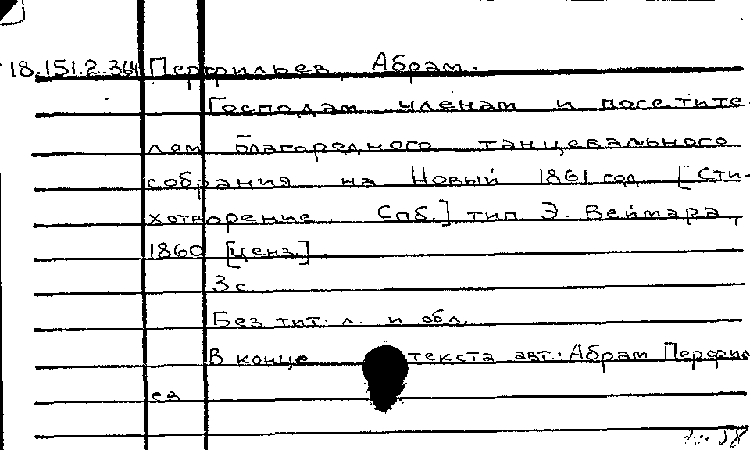 18.151.2.344 Перфильев, Абрам.
Господам членам и посетите-
лям Благородного танцевального
собрания на Новый 1861 год [Сти-
хотворение. Спб.] тип. Э. Веймара,
1860 [ценз.]
3 с.
Без тит. л. и обл.
В конце текста авт.: Абрам Перфиль
ев